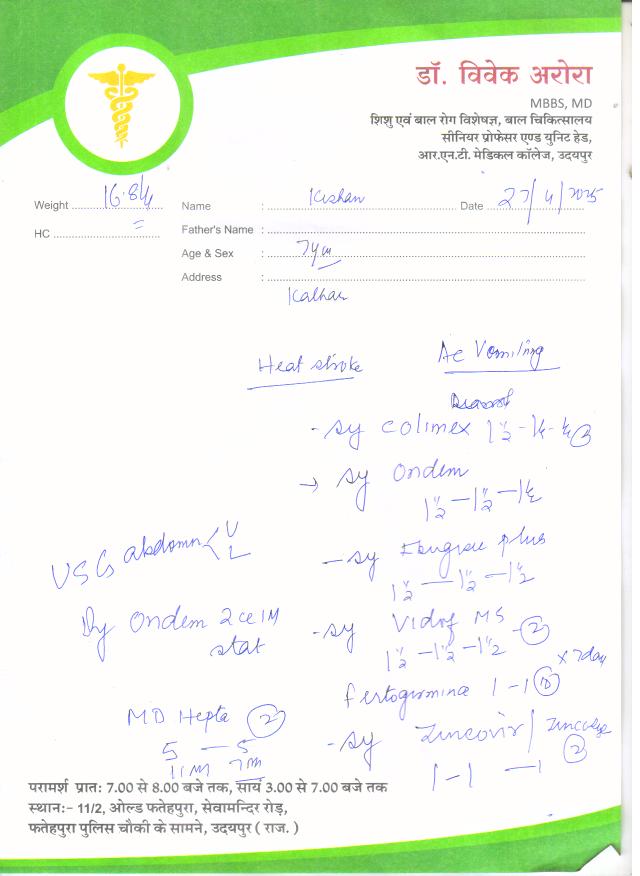 डॉ. विवेक अरोरा
MBBS, MD
शिशु एवं बाल रोग विशेषज्ञ, बाल चिकित्सालय
सीनियर प्रोफेसर एण्ड युनिट हेड,
आर.एन.टी. मेडिकल कॉलेज, उदयपुर
Weight 16.8
Name : Kishan
Date 27/4/2025
HC
Father's Name :
Age & Sex : 7y m
Address : Kalhar
Heat stroke
Ac Vomiling
- sy Colimex 1½ - 1½ - 1½
→ sy Ondem
1½ — 1½ — 1½
USG abdomn < U L
— sy plus
1½ — 1½ — 1½
Ondem 2 cc IM
stat
- sy MS
1½ - 1½ - 1½ - 2
x 7day
1 - 1 10
MD Hepta 2
5 — 5
- sy Zincovir /
2
1 - 1 — 1
परामर्श प्रातः 7.00 से 8.00 बजे तक, सायं 3.00 से 7.00 बजे तक
स्थानः- 11/2, ओल्ड फतेहपुरा, सेवामन्दिर रोड़,
फतेहपुरा पुलिस चौकी के सामने, उदयपुर ( राज. )